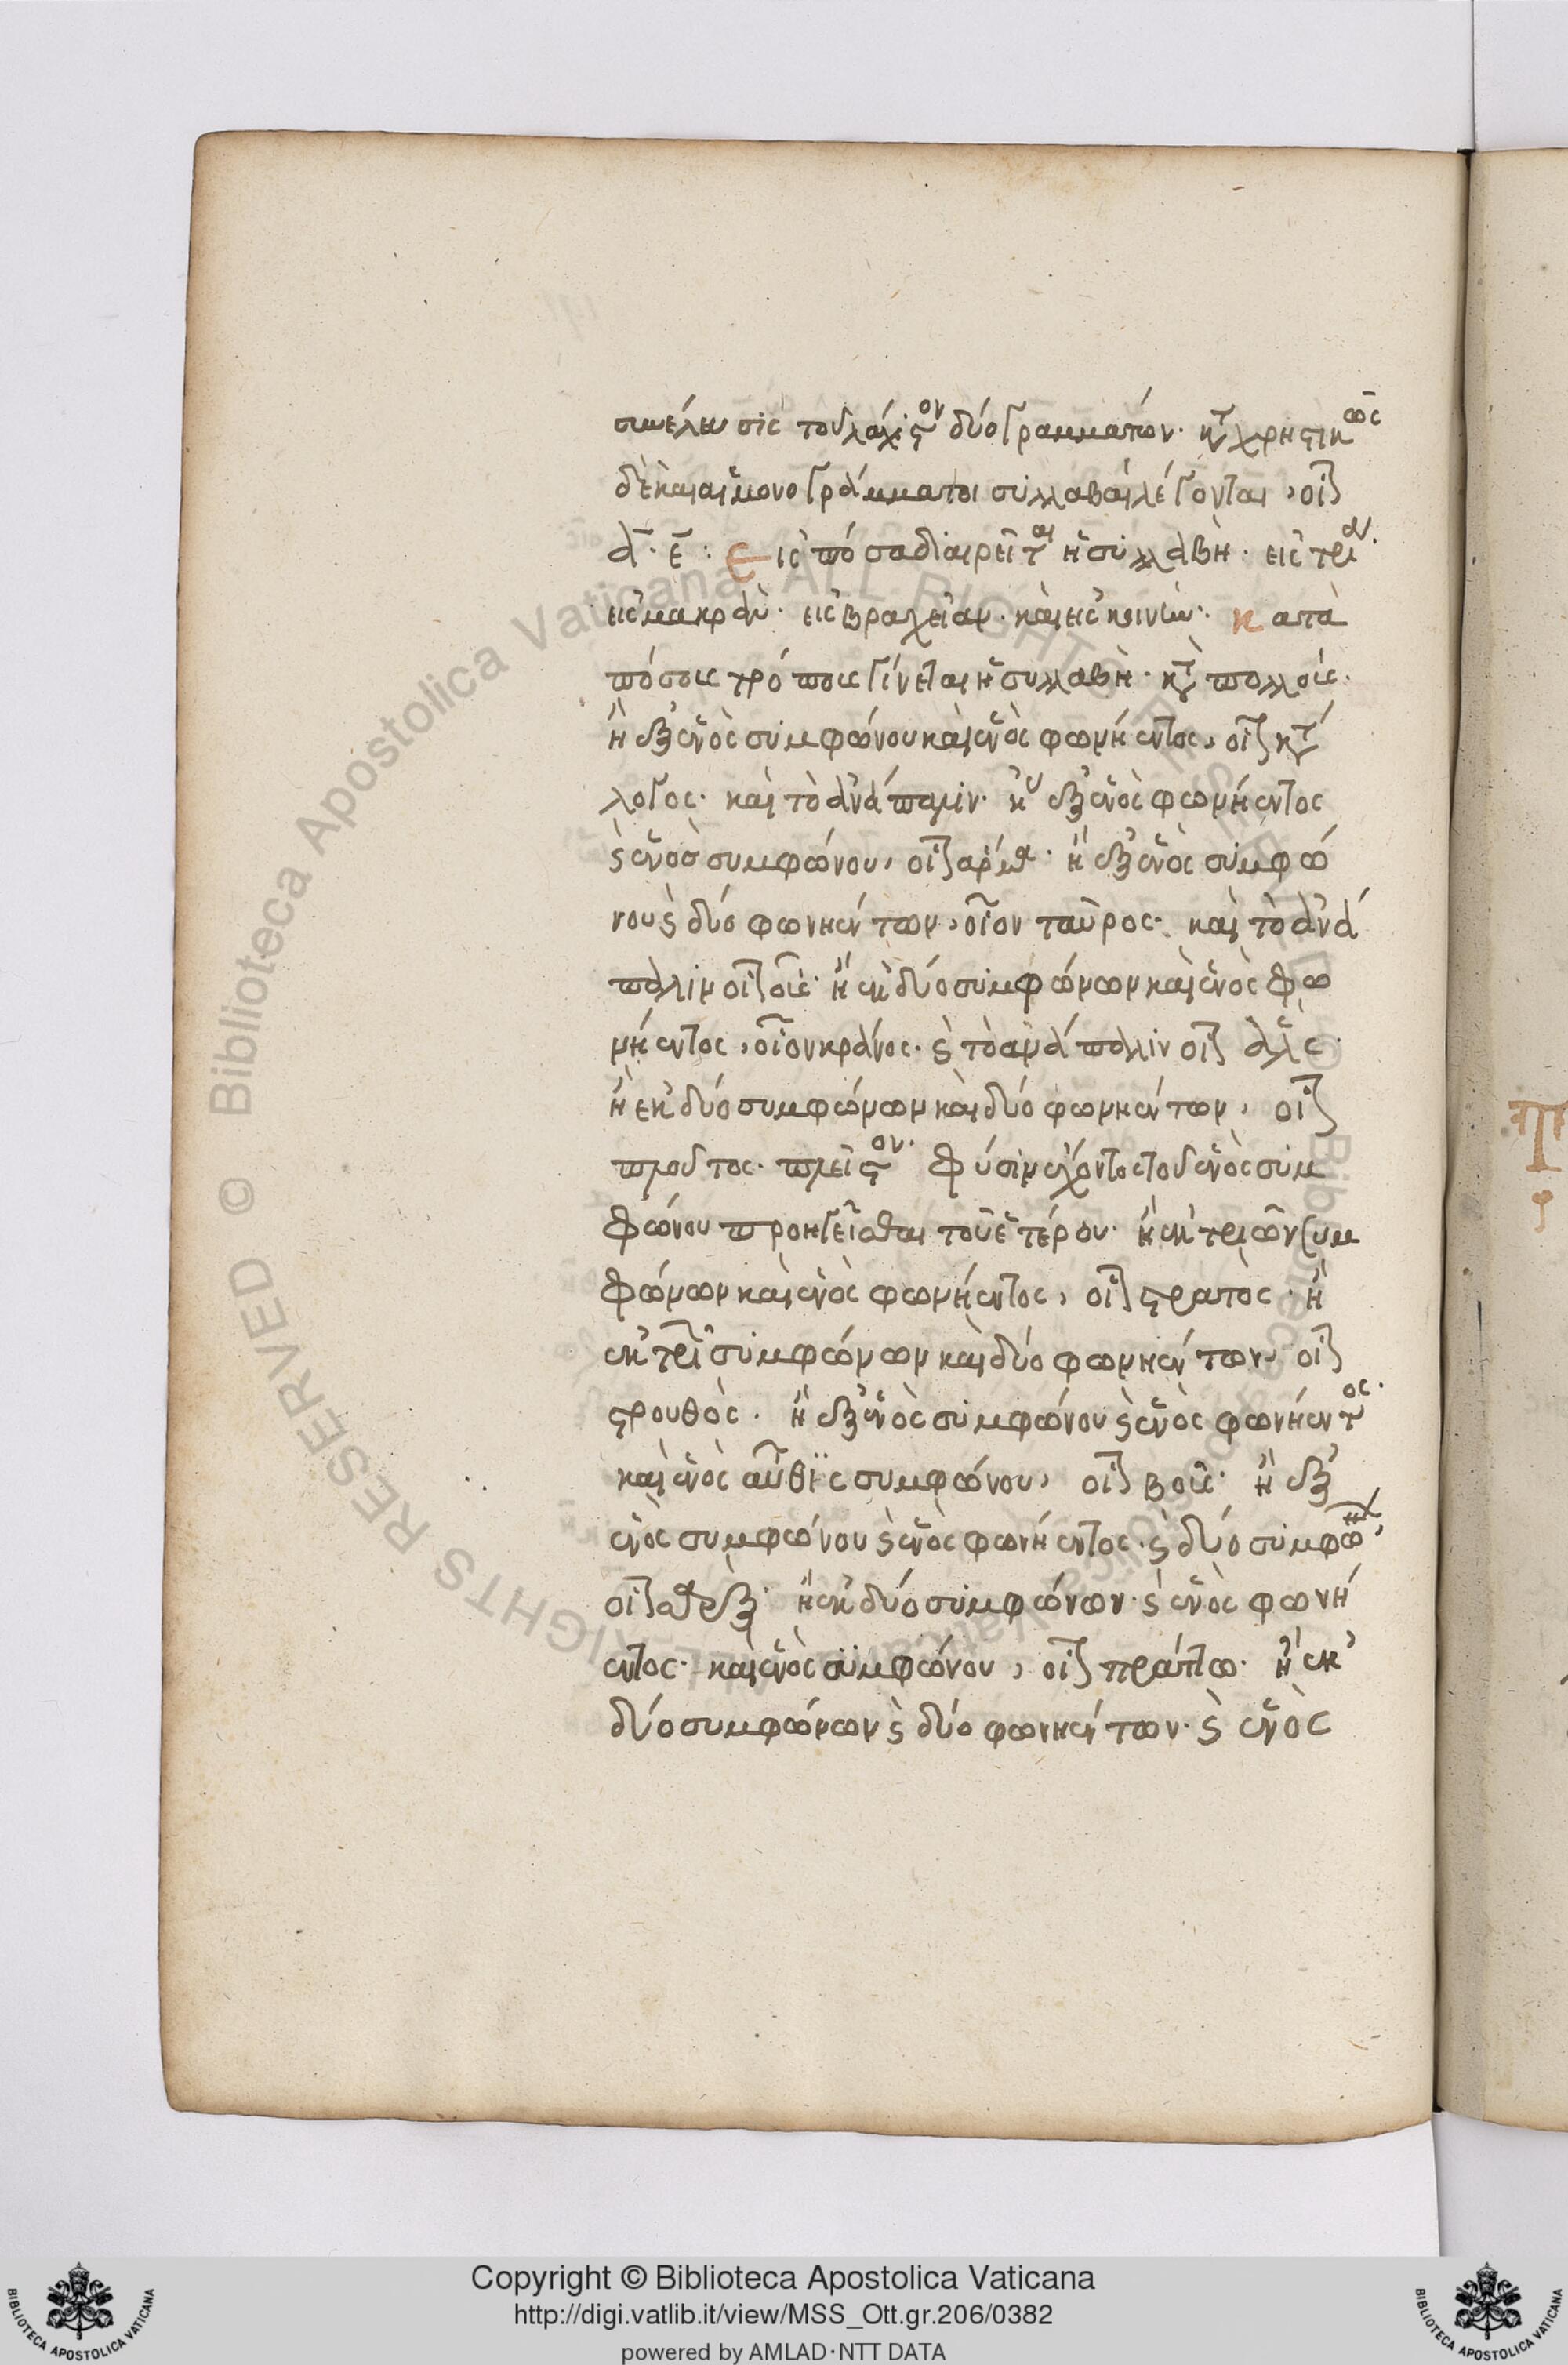 συνέλευσις τοὐλάχιστον δύο γραμμάτων· κ(α)τ(α)χρηστικῶς
δὲ καὶ αἱ μονογράμματοι συλλαβαὶ λέγονται, οἷ(ον)
ᾱ· ε̄: Εἰς πόσα διαιρεῖται ἡ συλλαβή· εἰς τρία·
εἰς μακράν· εἰς βραχεῖαν· καὶ εἰς κοινήν· κατὰ
πόσους τρόπους γίνεται ἡ συλλαβή· κ(α)τ(ὰ) πολλούς·
ἢ ἐξ ἑνὸς συμφώνου καὶ ἑνὸς φωνήεντος, οἷ(ον)
λόγος· καὶ τὸ ἀνάπαλιν· ἢ ἐξ ἑνὸς φωνήεντος
κ(αὶ) ἑνὸσ συμφώνου, οἷ(ον) · ἢ ἐξ ἑνὸς συμφώ
νου κ(αὶ) δύο φωνηέντων, οἷον ταῦρος· καὶ τὸ ἀνά
παλιν οἷ(ον) οἷς· ἢ ἐκ δύο συμφώνων καὶ ἑνὸς φω
νήεντος, οἷον κράνος· κ(αὶ) τὸ ἀνάπαλιν οἷ(ον) ἅλς·
ἢ ἐκ δύο συμφώνων καὶ δύο φωνηέντων, οἷ(ον)
πλοῦτος· πλεῖστον· φύσιν ἔχοντος τοῦ ἑνὸς συμ
φώνου προηγεῖσθαι τοῦ ἑτέρου· ἢ ἐκ τριῶν συμ
φώνων καὶ ἑνὸς φωνήεντος, οἷ(ον) στρατὸς· ἢ
ἐκ τριῶν συμφώνων καὶ δύο φωνηέντων, οἷ(ον)
στρουθὸς· ἢ ἐξ ἑνὸς συμφώνου κ(αὶ) ἑνὸς φωνήεντος·
καὶ ἑνὸς αὖθϊς συμφώνου, οἷ(ον) · ἢ ἐξ
ἑνὸς συμφώνου κ(αὶ) ἑνὸς φωνήεντος· κ(αὶ) δύο συμφώνων,
οἷ(ον) · ἢ ἐκ δύο συμφώνων· κ(αὶ) ἑνὸς φωνή
εντος· καὶ ἑνὸς συμφώνου, οἷ(ον) πράττω· ἢ ἐκ
δύο συμφώνων κ(αὶ) δύο φωνηέντων· κ(αὶ) ἑνὸς
Copyright © Biblioteca Apostolica Vaticana
http://digi.vatlib.it/view/MSS_Ott.gr.206/0382
powered by AMLAD·NTT DATA
BIBLIOTECA APOSTOLICA VATICANA
BIBLIOTECA APOSTOLICA VATICANA